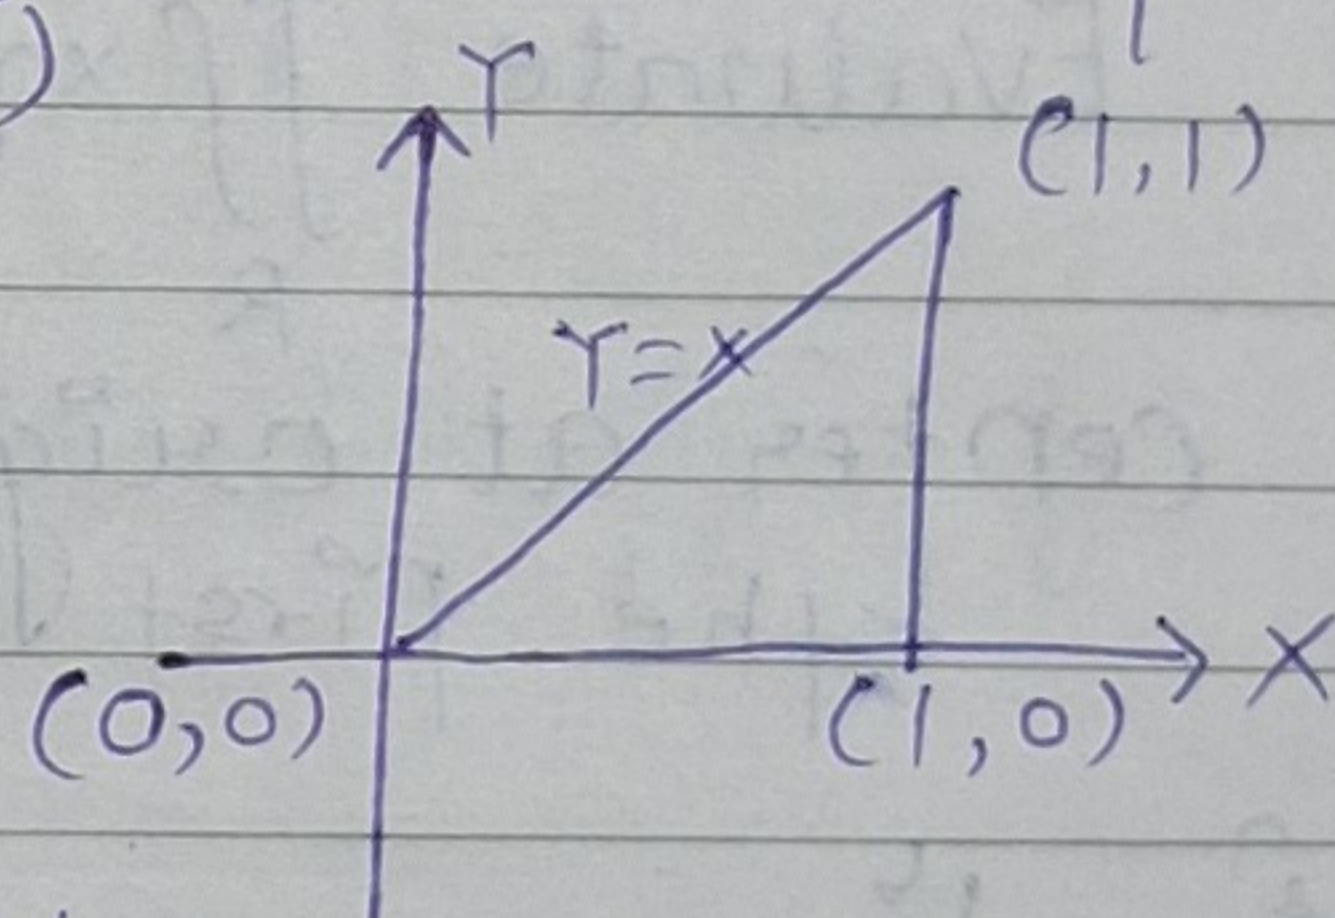 Y
(1,1)
Y=x
X
(0,0)
(1,0)